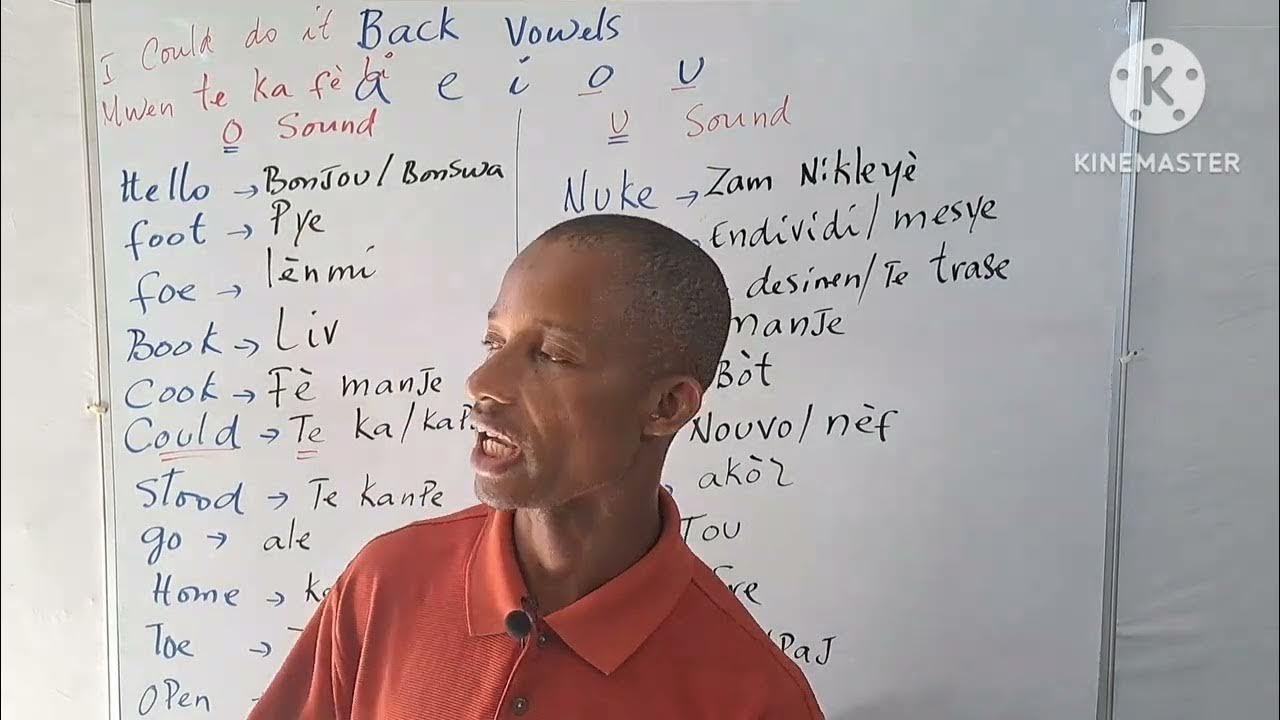 I Could do it Back Vowels
Mwen te ka fè a e i o U
O Sound
Hello → BonJou/Bonswa
foot → Pye
foe → lènmi
Book → Liv
Cook → Fè manJe
Could → Te ka/kap
Stood → Te kanPe
go → ale
Home →
Toe →
OPen
U Sound
Nuke → Zam Nikleyè
Endividi/mesye
desinen/Te trase
manJe
Bòt
Nouvo/nèf
akòz
Tou
PaJ
K
KINEMASTER